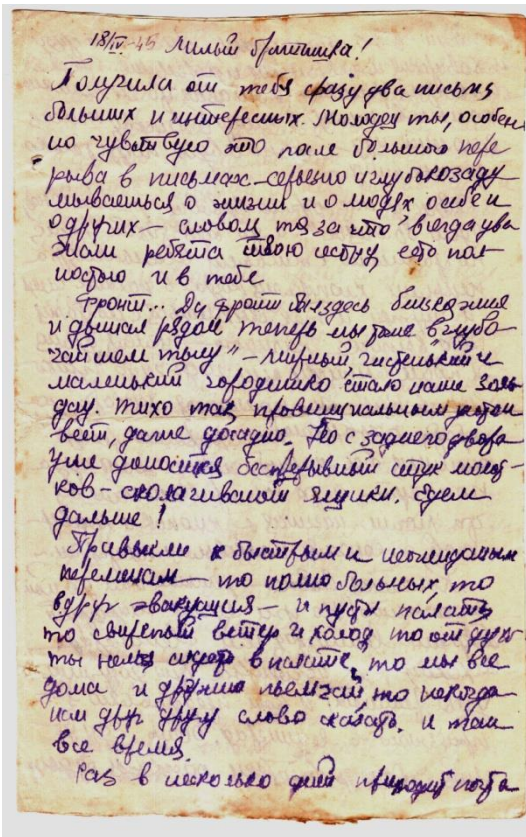 18/IV-45 Милый братишка!
Получила от тебя сразу два письма
больших и интересных. Молодец ты, особен
но чувствую это после большого пере
рыва в письмах – серьезно и глубоко заду
мываешься о жизни и о людях, о себе и
о других – словом то за что всегда ува
жали ребята твою сестру есть пол
ностью и в тебе
Фронт... Да фронт был здесь близко жил
и дышал рядом теперь мы тоже "в глубо
чайшем тылу" – мирный, чистенький и
маленький городишко стало наше
Тихо так, провинциальным уютом
веет, даже досадно. Но с заднего двора
уже доносится беспрерывный стук молот
ков – сколачивают ящики. Едем
дальше!
Привыкли к быстрым и неожиданным
переменам – то полно больных, то
вдруг эвакуация – и пусты палаты
то свирепый ветер и холод то от духо
ты нельзя в палате, то мы все
дома и дружно пьем чай, то некогда
нам друг другу слово сказать. и так
все время.
Раз в несколько дней приходит почта